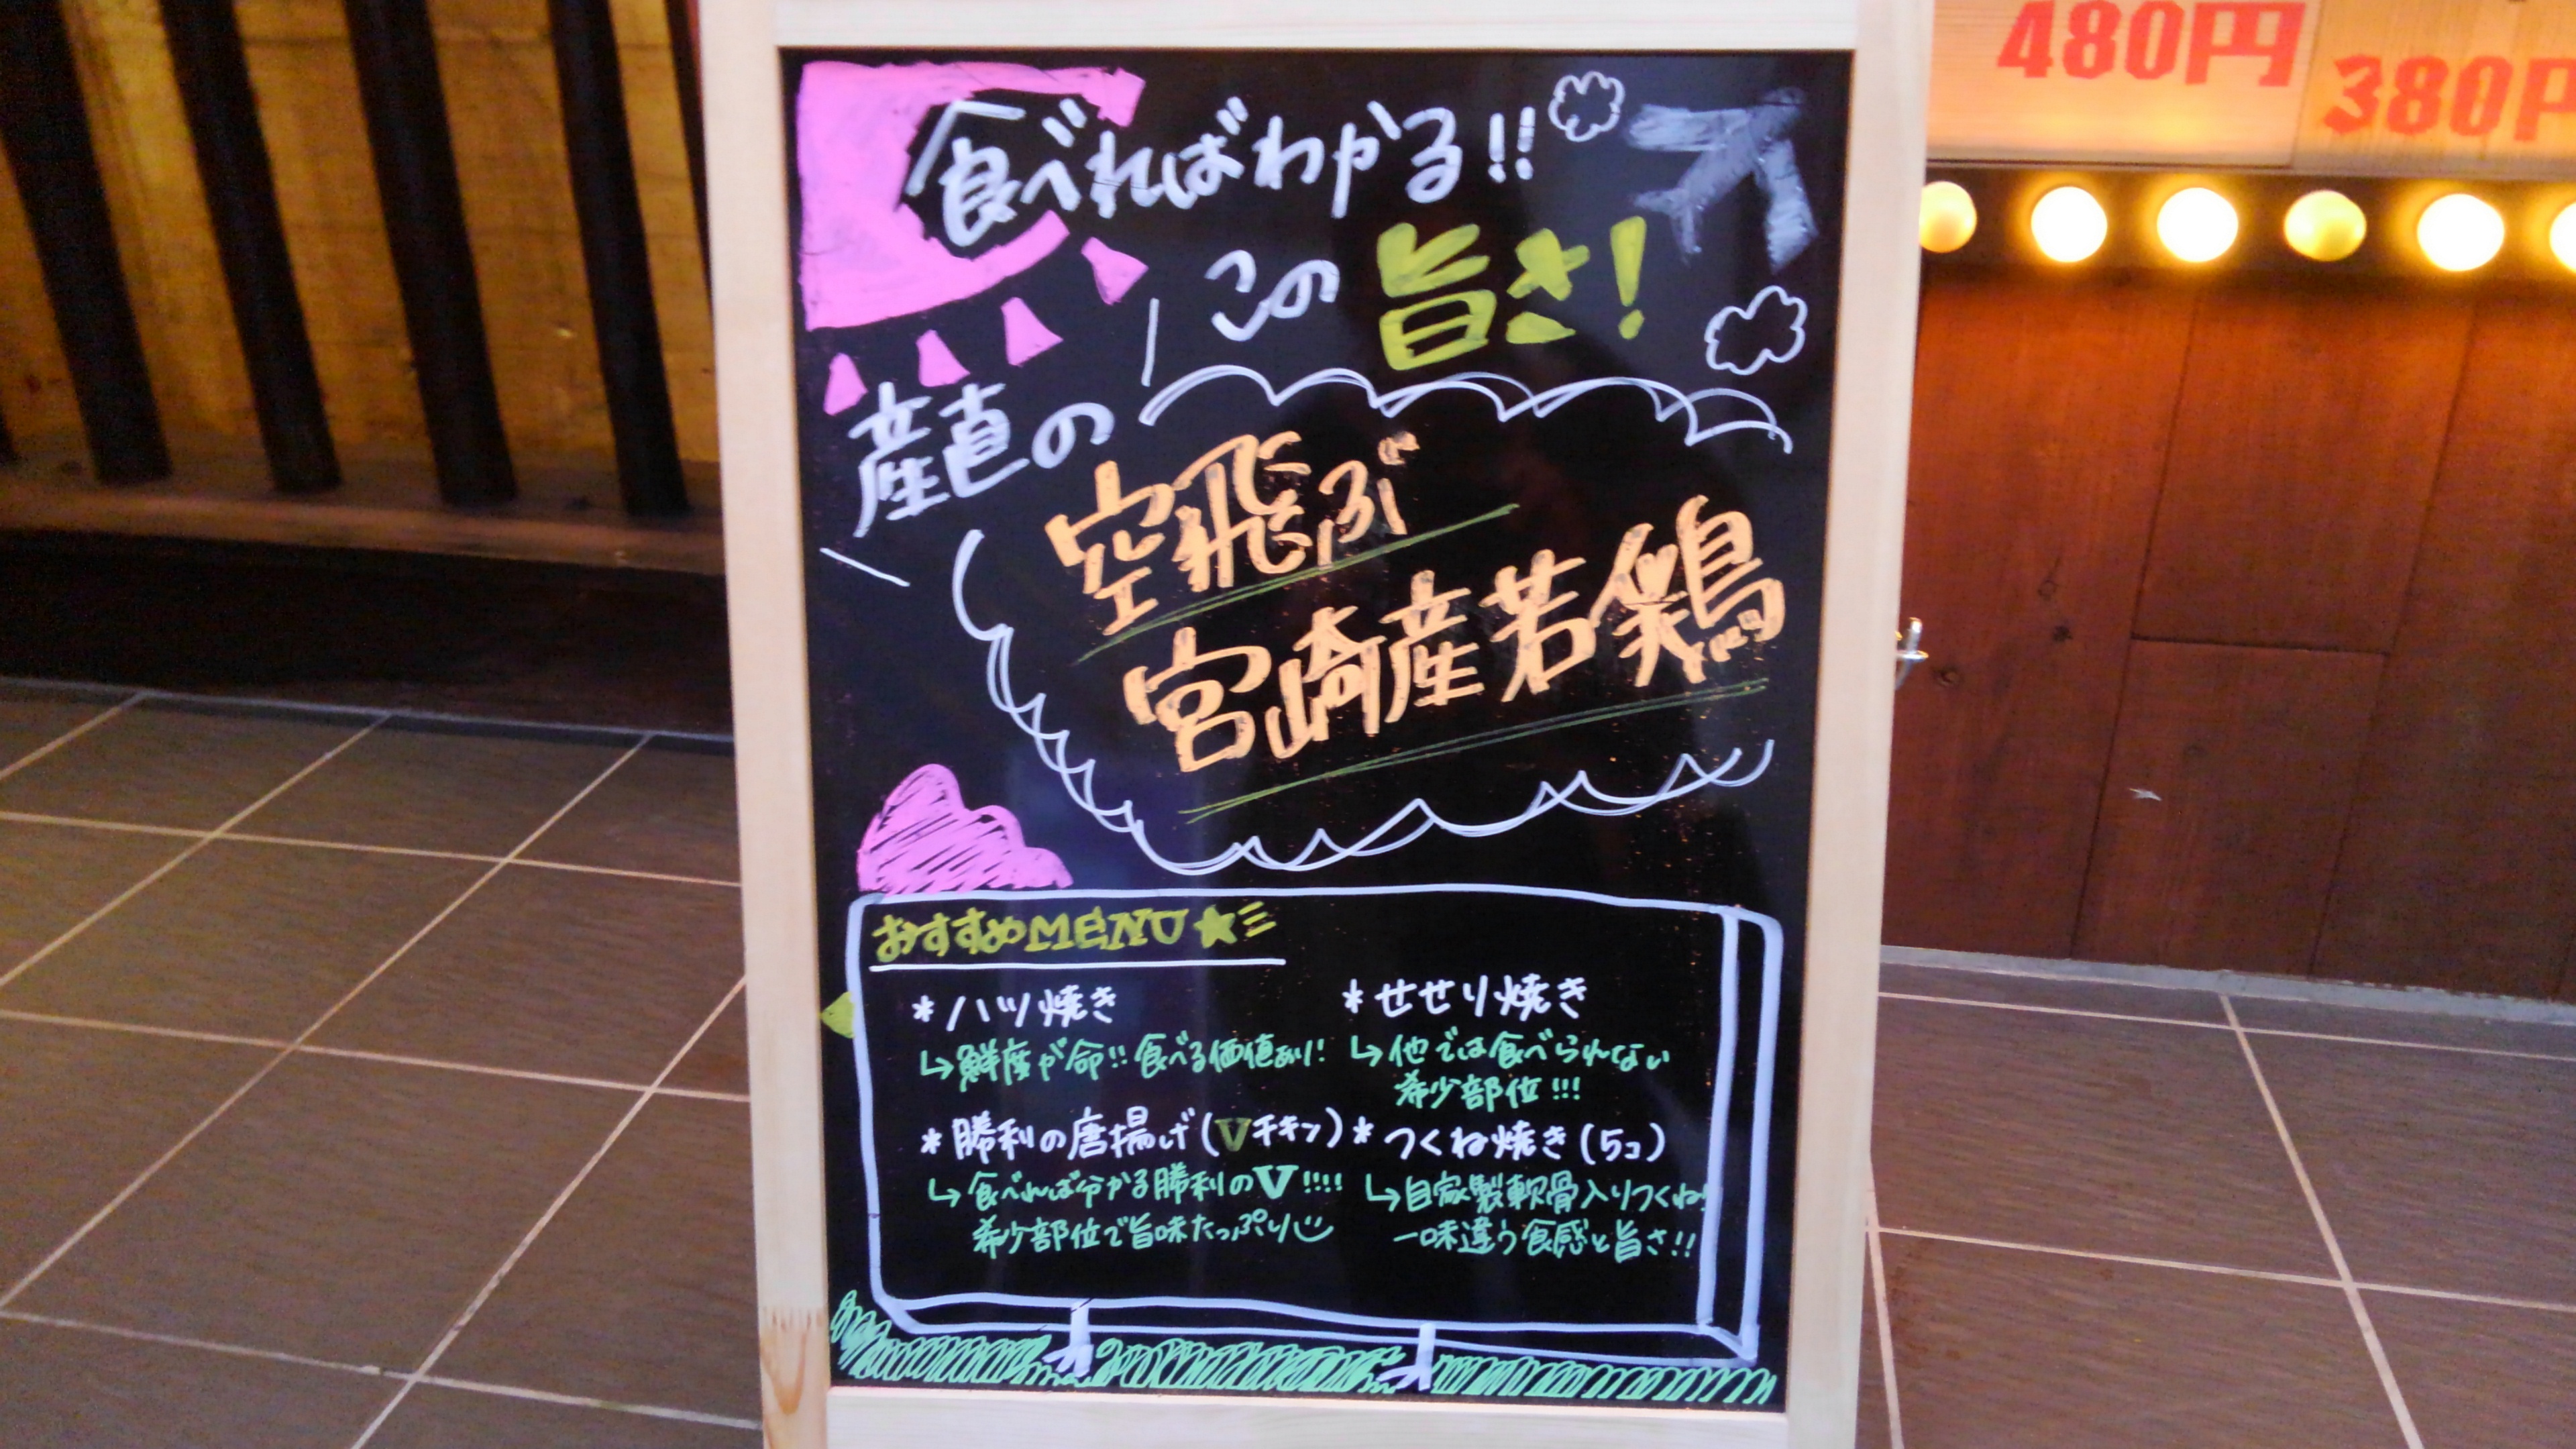 食べればわかる!!
この旨さ!
産直の
空飛ぶ
宮崎産若鶏
おすすめMENU★
*ハツ焼き
↳鮮度が命!!食べる価値あり!
*せせり焼き
↳他では食べられない
希少部位!!!
*勝利の唐揚げ(Vチキン)
↳食べれば分かる勝利のV!!!!
希少部位で旨味たっぷり
*つくね焼き(5コ)
↳自家製軟骨入りつくね!
一味違う食感と旨さ!!
480円
380円